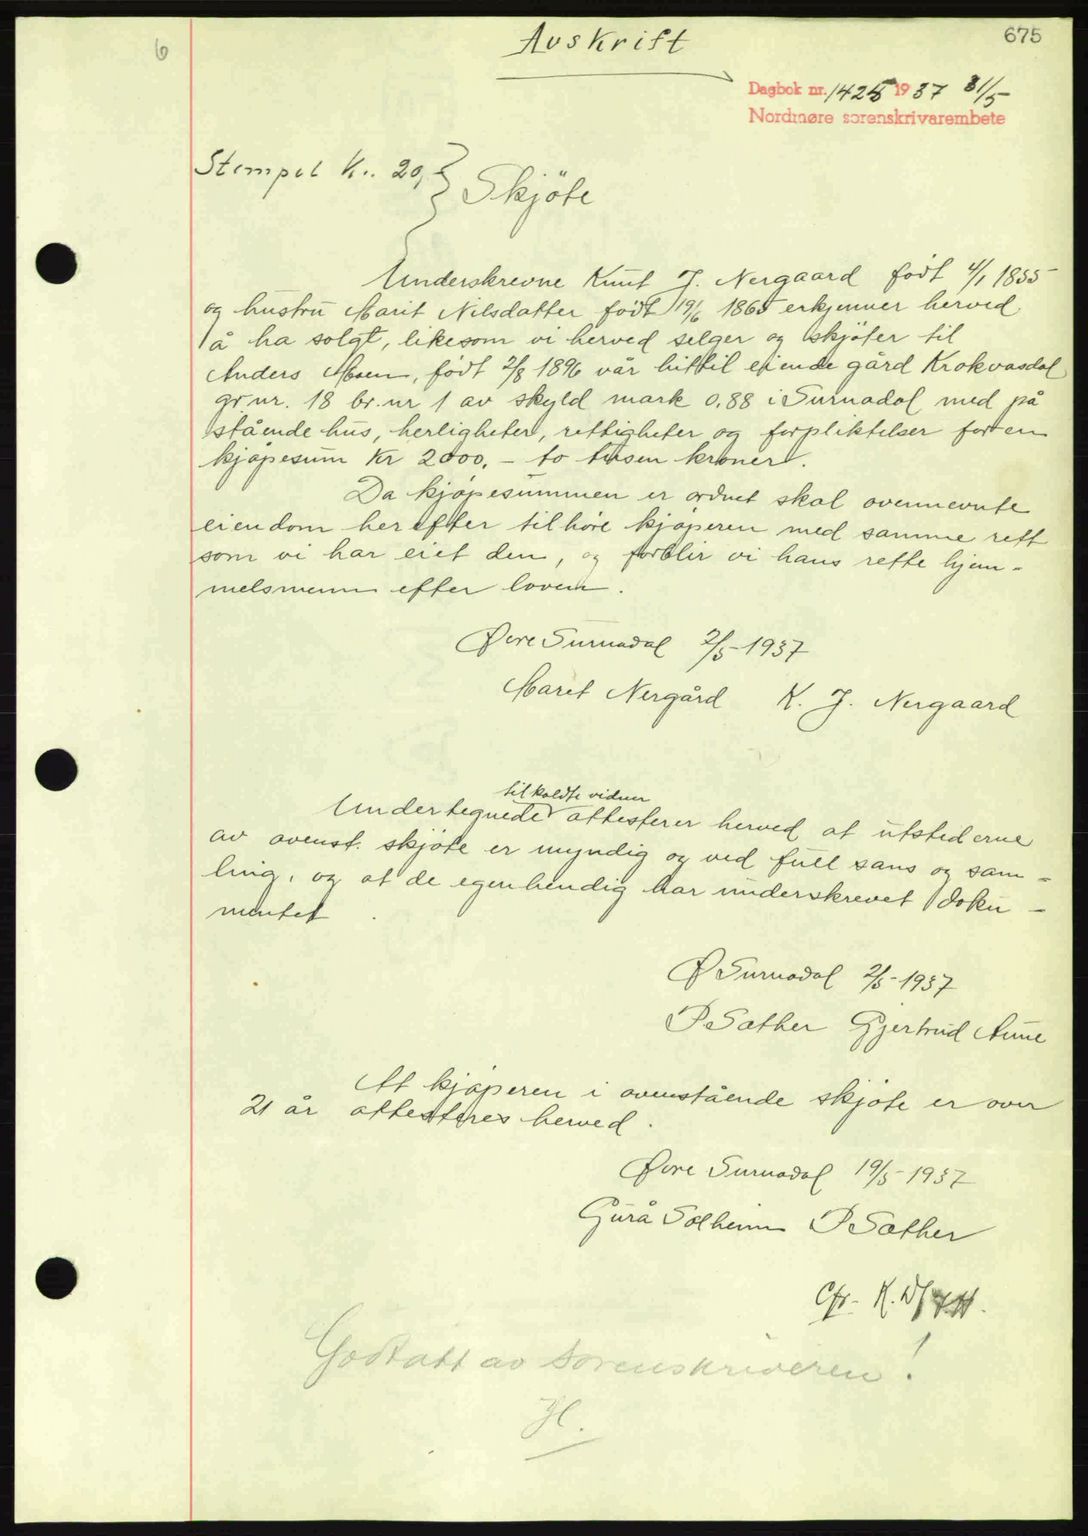 6
Avskrift
675
Dagbok nr. 1425 1937 31/5
Nordmøre sorenskrivarembete
Stempel Kr. 20,-
Skjöte
Underskrevne Knut J. Nergaard født 4/1 1855
og hustru Marit Nilsdatter født 19/6 1865 erkjenner herved
å ha solgt, likesom vi herved selger og skjöter til
Anders Moen, født 2/8 1896 vår hittil eiende gård Krokvasdal
gr nr. 18 br. nr 1 av skyld mark 0,88 i Surnadal med på
stående hus, herligheter, rettigheter og forpliktelser for en
kjøpesum Kr 2000,- to tusen kroner.
Da kjøpesummen er ordnet skal ovennevnte
eiendom herefter tilhöre kjøperen med samme rett
som vi har eiet den, og forblir vi hans rette hjem-
melsmenn efter loven.
Øvre Surnadal 2/5-1937
Maret Nergård K. J. Nergaard
tilkaldte vidner
Undertegnede attesterer herved at utstederne
av ovenst. skjöte er myndig og ved full sans og sam-
ling, og at de egenhendig har underskrevet doku-
mentet.
Ø Surnadal 2/5-1937
P Sæther Gjertrud Aune
At kjøperen i ovenstående skjöte er over
21 år attesteres herved.
Øvre Surnadal 19/5-1937
Gurå Solheim P Sæther
Cfr. K.
Godtatt av sorenskriveren!
H.